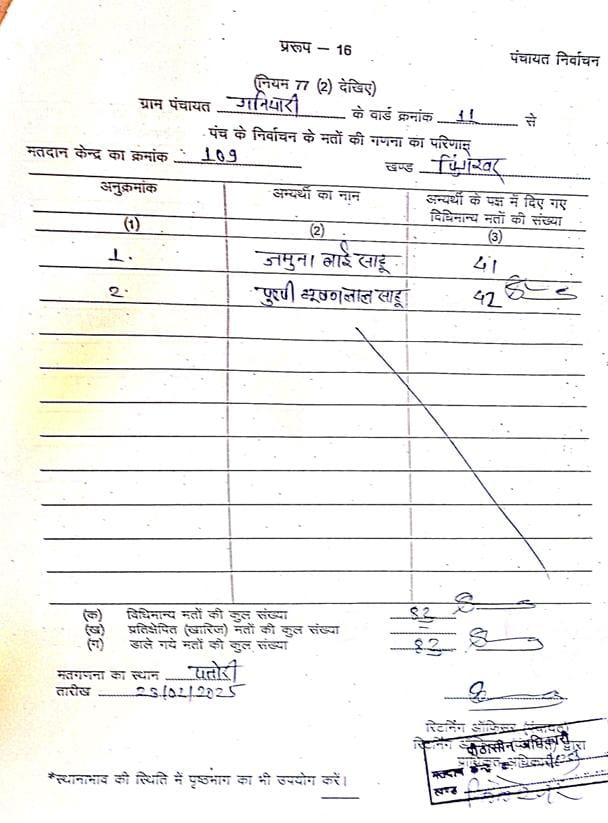 प्ररूप – 16
पंचायत निर्वाचन
(नियम 77 (2) देखिए)
ग्राम पंचायत गनियारी के वार्ड क्रमांक 11 से
पंच के निर्वाचन के मतों की गणना का परिणाम
मतदान केन्द्र का क्रमांक : 109 खण्ड
अनुक्रमांक अभ्यर्थी का नाम अभ्यर्थी के पक्ष में दिए गए
विधिमान्य मतों की संख्या
(1) (2) (3)
1. जमुना बाई साहू 41
2. लाल साहू 42
(क) विधिमान्य मतों की कुल संख्या
(ख) प्रतिक्षेपित (खारिज) मतों की कुल संख्या –
(ग) डाले गये मतों की कुल संख्या
मतगणना का स्थान
तारीख 23/02/2025
रिटर्निंग ऑफिसर (पंचायत)
रिटर्निंग द्वारा
पीठासीन अधिकारी
मतदान
खण्ड
*स्थानाभाव की स्थिति में पृष्ठभाग का भी उपयोग करें।